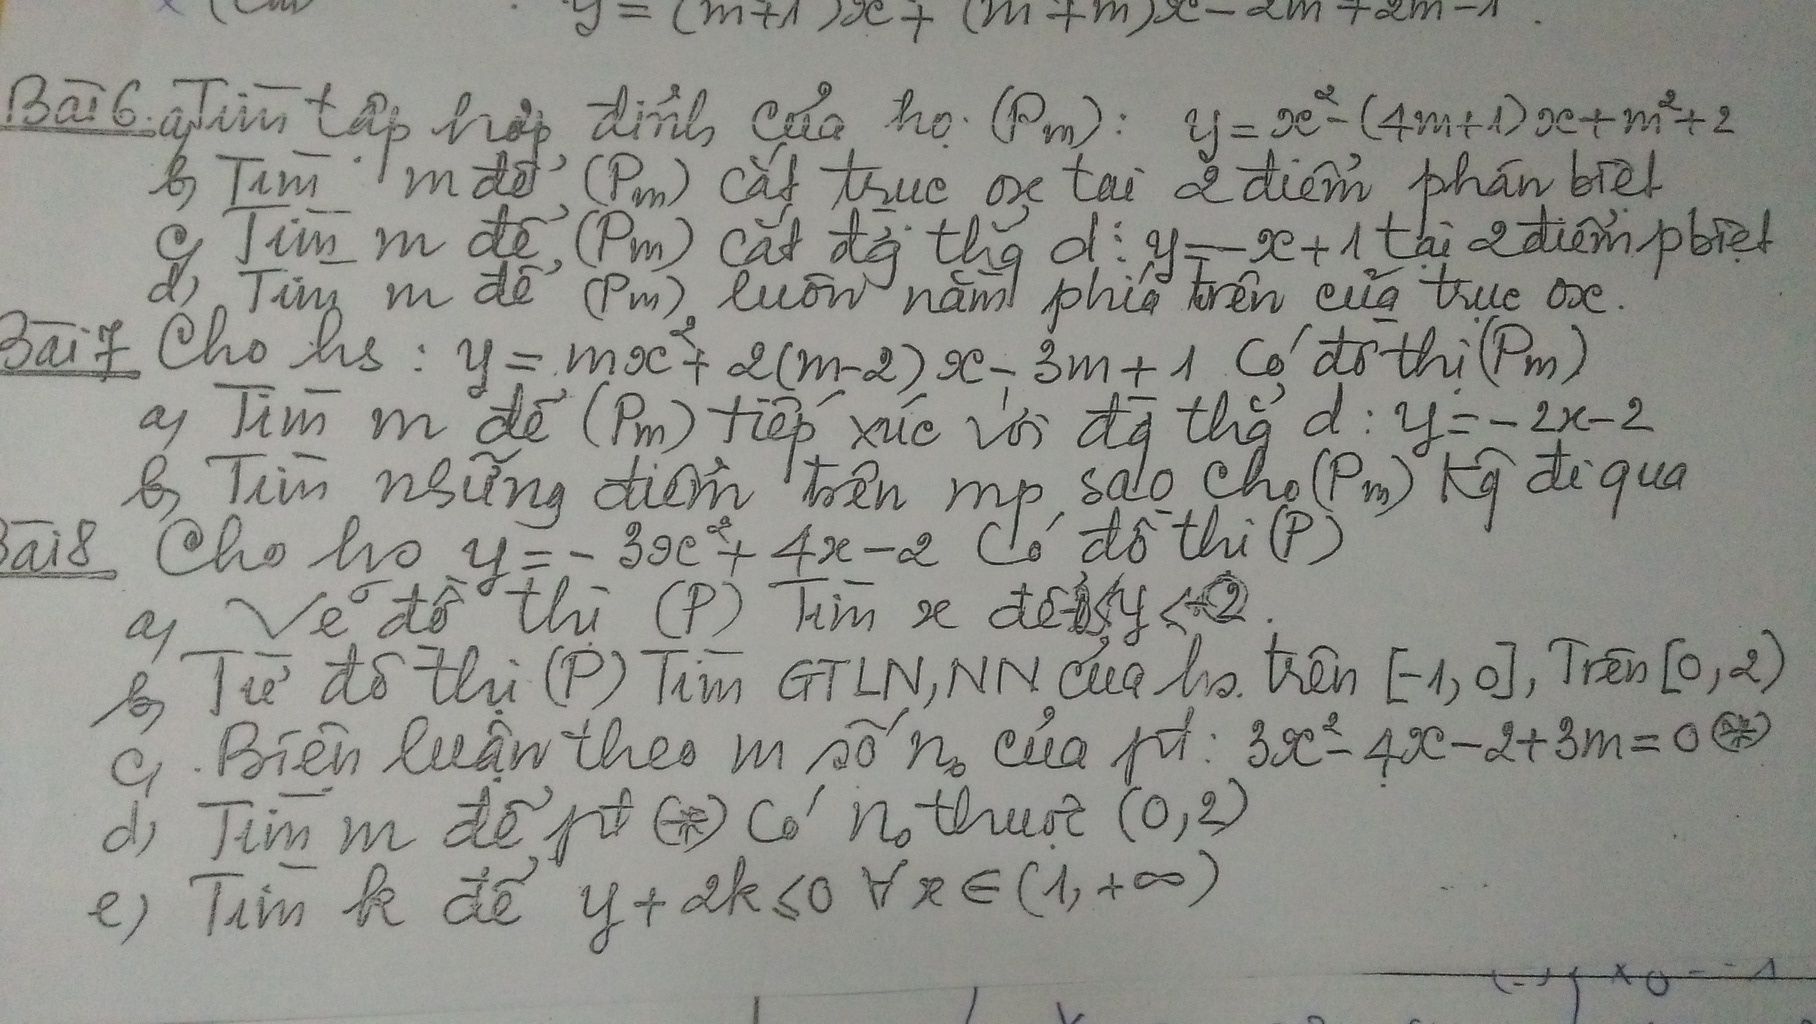 y = (m+1)x + (m+m)x - 2m + 2m - 1.
Bài 6. a, Tìm tập hợp đỉnh của họ (Pm): y = x² - (4m+1)x + m² + 2
b, Tìm m để (Pm) cắt trục ox tại 2 điểm phân biệt
c, Tìm m để (Pm) cắt đg thg d: y = -x + 1 tại 2 điểm pbiệt
d, Tìm m để (Pm) luôn nằm phía trên của trục ox.
Bài 7 Cho hs: y = mx² + 2(m-2)x - 3m + 1 Có đồ thị (Pm)
a, Tìm m để (Pm) tiếp xúc với đg thg d: y = -2x - 2
b, Tìm những điểm trên mp sao cho (Pm) Kg đi qua
Bài 8 Cho hs y = -3x² + 4x - 2 Có đồ thi (P)
a, Vẽ đồ thị (P) Tìm x để y <
b, Từ đồ thị (P) Tìm GTLN, NN của hs. trên [-1, 0], Trên [0, 2)
c, Biện luận theo m số no của pt: 3x² - 4x - 2 + 3m = 0 (*)
d, Tìm m để pt (*) Có no thuộc (0, 2)
e) Tìm k để y + 2k ≤ 0 ∀x ∈ (1, +∞)